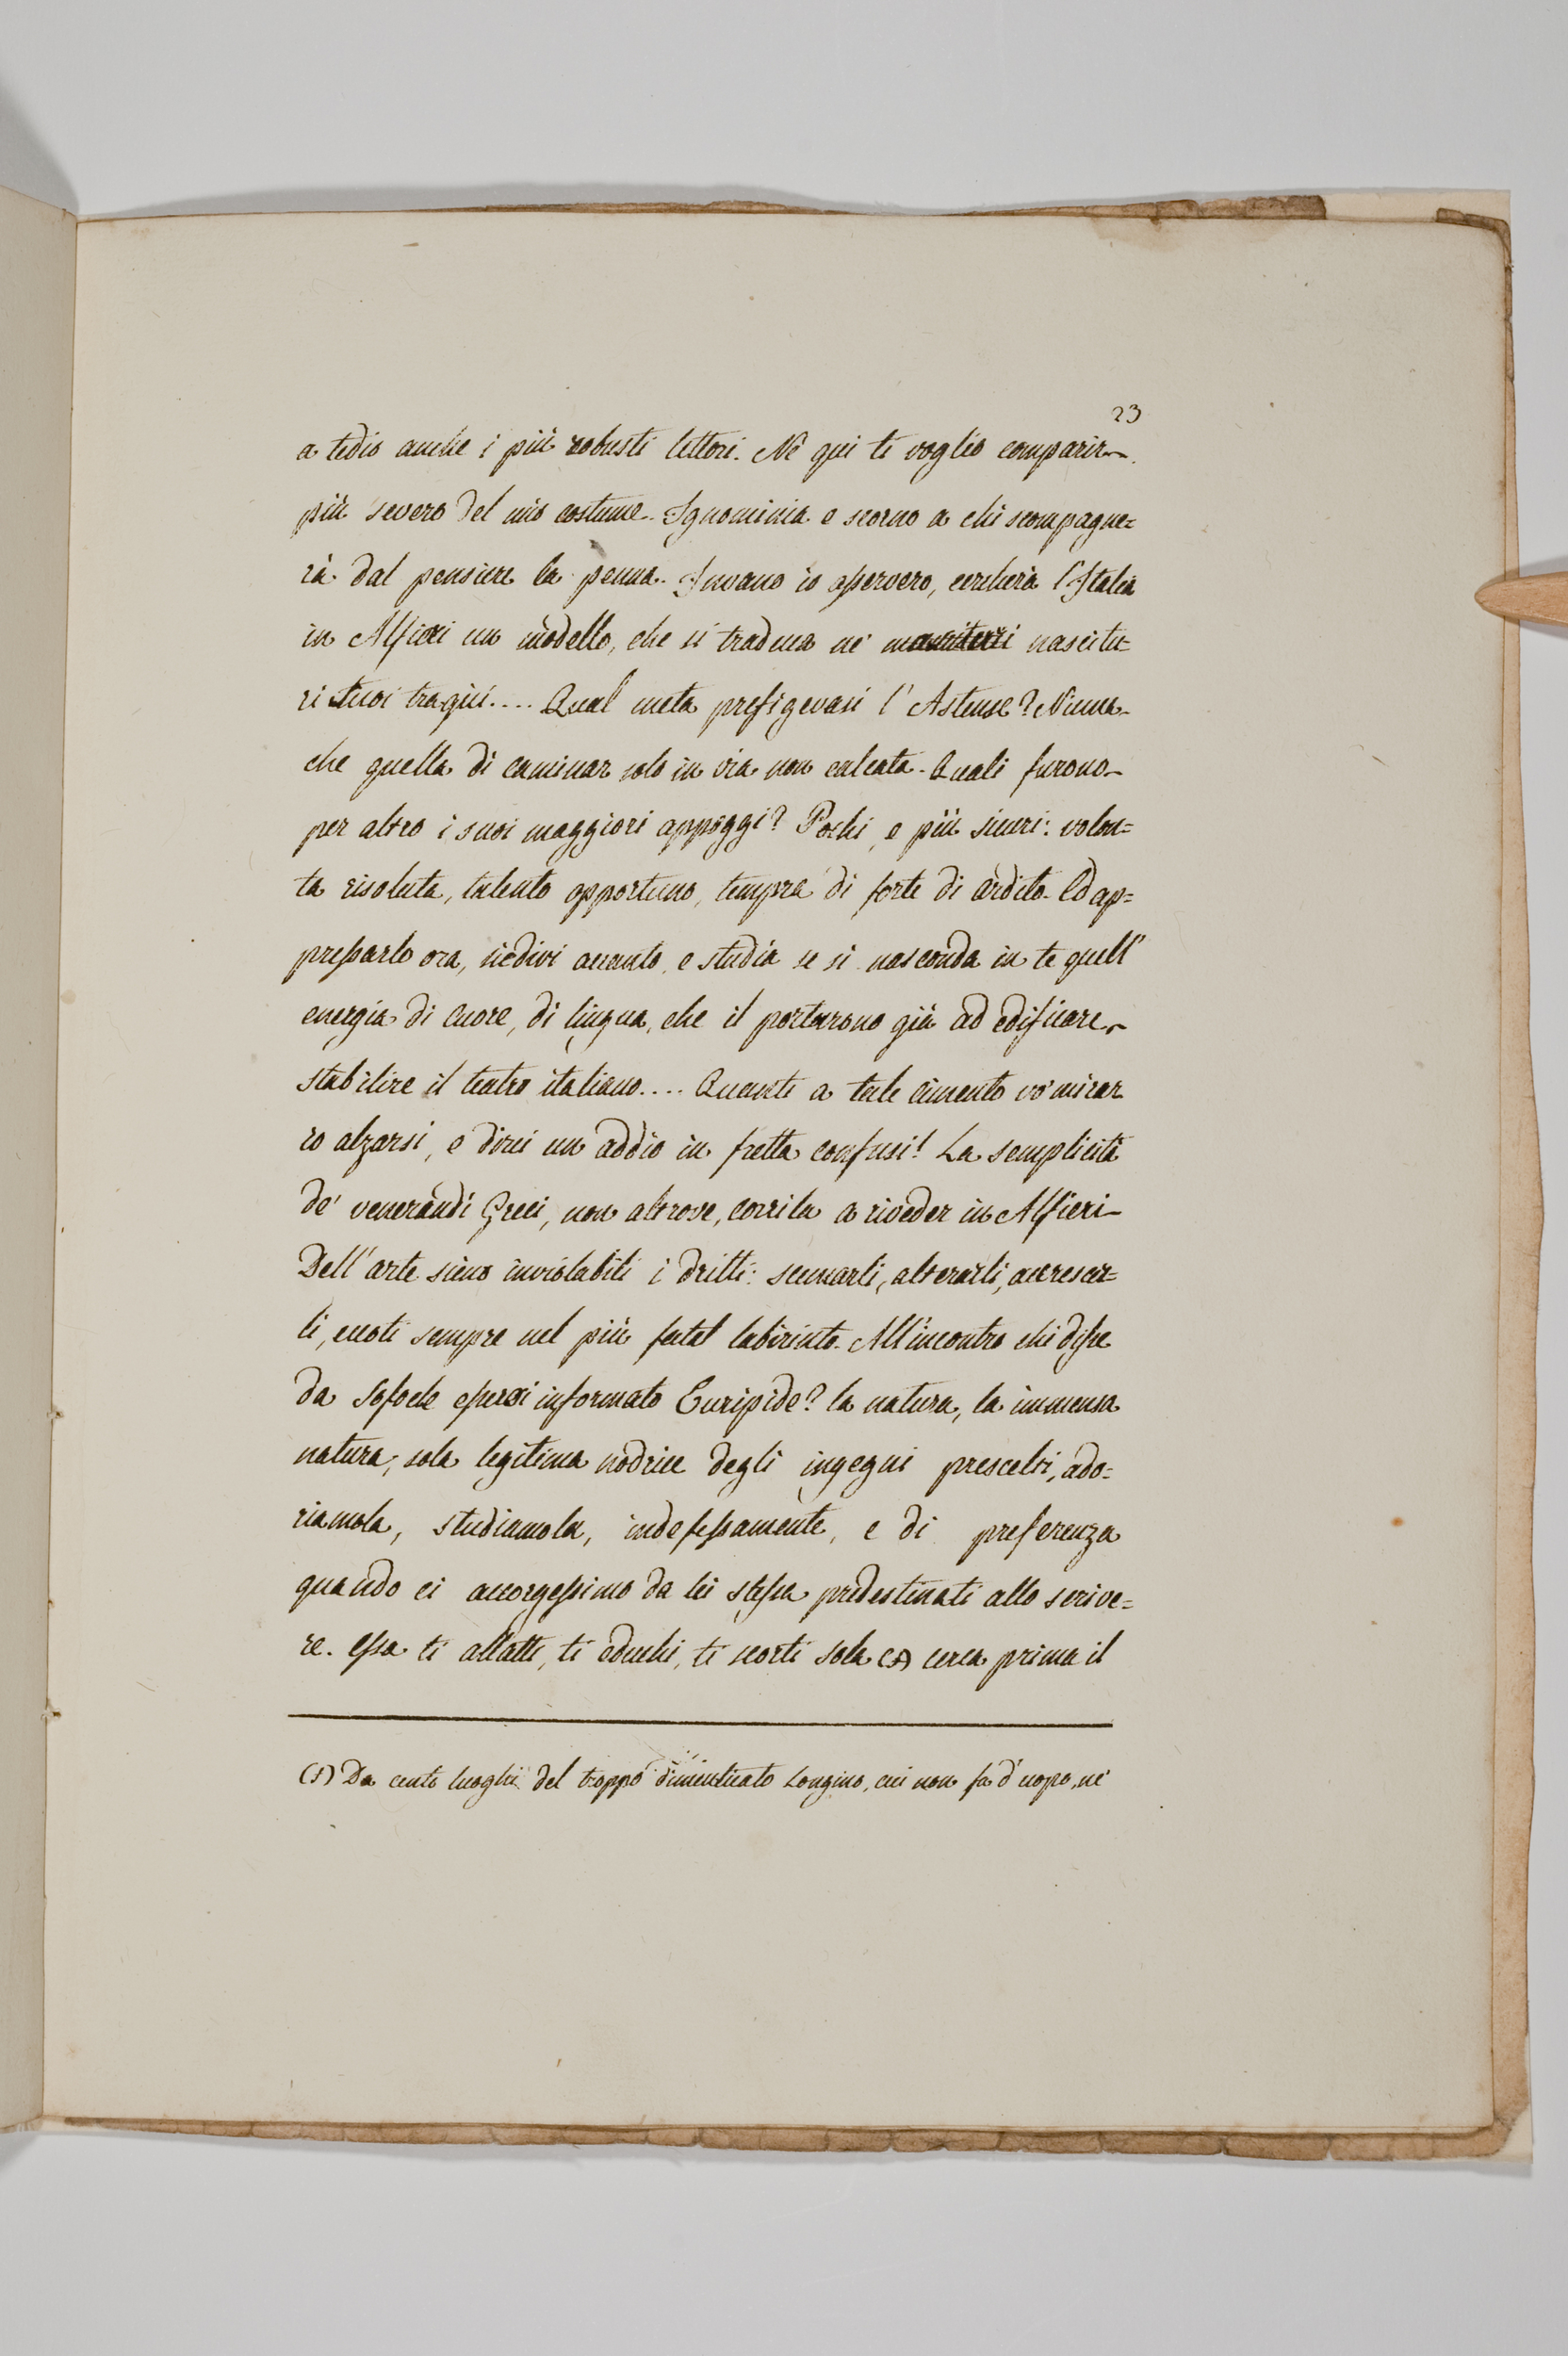 23
a tedio anche i più robusti lettori. Nè qui ti voglio comparir
più severo del mio costume. Ignominia e scorno a chi scompagne=
rà dal pensiere la penna. Invano io asservero, cercherà l'Italia
in Alfieri un modello, che si traduca ne' nascitu=
ri suoi tragici.... Qual meta prefigevasi l'Astense? Niuna
che quella di caminar solo in via non calcata. Quali furono
per altro i suoi maggiori appoggi? Pochi, e più sicuri: volon=
ta risoluta, talento opportuno, tempra di forte di ardito. Ed ap=
pressarlo ora, siedivi accanto, e studia se si nasconda in te quell'
energia di cuore, di lingua, che il portarono già ad edificare
stabilire il teatro italiano.... Quanti a tale cimento vo' mirar
io alzarsi, e dirci un addio in fretta confusi! La semplicità
de' venerandi Greci, non altrove, corrila a riveder in Alfieri
Dell'arte sieno inviolabili i dritti: scemarli, alterarli, accrescer=
li, ecoti sempre nel più fatal labirinto. All'incontro chi disse
da Sofocle essersi informato Euripide? la natura, la immensa
natura, sola legitima nodrice degli ingegni prescelti, ado=
riamola, studiamola, indefessamente, e di preferenza
quando ci accorgessimo da lei stessa predestinati allo scrive=
re. Essa ti allatti, ti educhi, ti scorti sola (1) cerca prima il
(1) Da cento luoghi del troppo dimenticato Longino, cui non fa d'uopo, nè